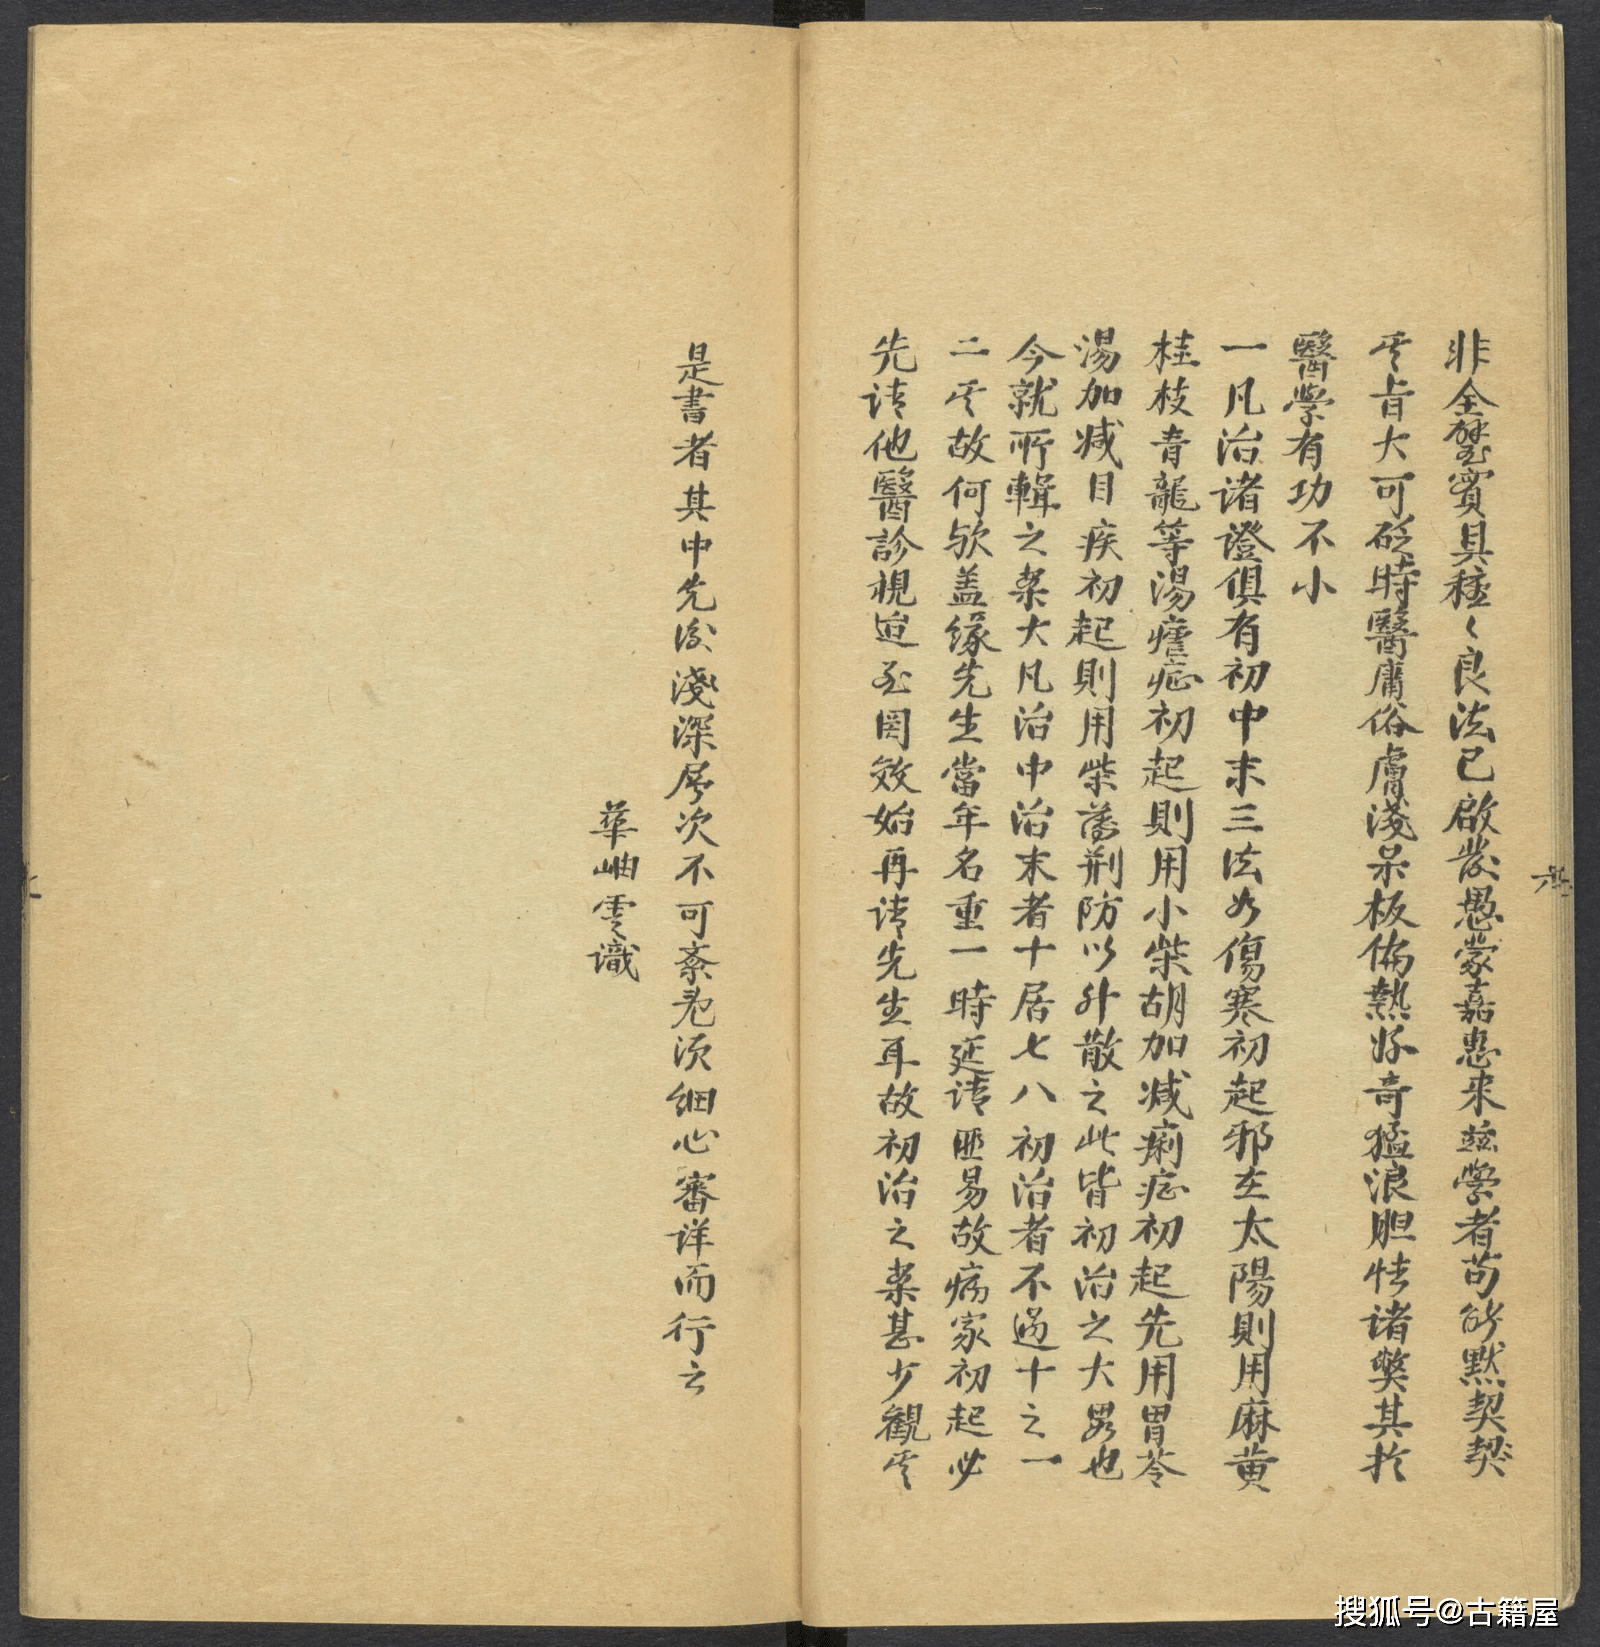 非全璧實具種〻良法已啟發愚蒙嘉惠來茲學者苟能默契契
其旨大可砭時醫庸俗膚淺呆板偏熱好奇猛浪胆怯諸獘其於
醫學有功不小
一凡治诸證俱有初中末三法如傷寒初起邪在太陽則用麻黄
桂枝青龍等湯瘧症初起則用小柴胡加减痢症初起先用胃苓
湯加减目疾初起則用柴葛荆防以升散之此皆初治之大畧也
今就所輯之案大凡治中治末者十居七八初治者不過十之一
二其故何欤盖缘先生當年名重一時延请匪易故病家初起必
先请他醫診視迨至罔效始再请先生耳故初治之案甚少觀其
是書者其中先後淺深層次不可紊乱须細心審详而行之
華岫雲識
搜狐号@古籍屋